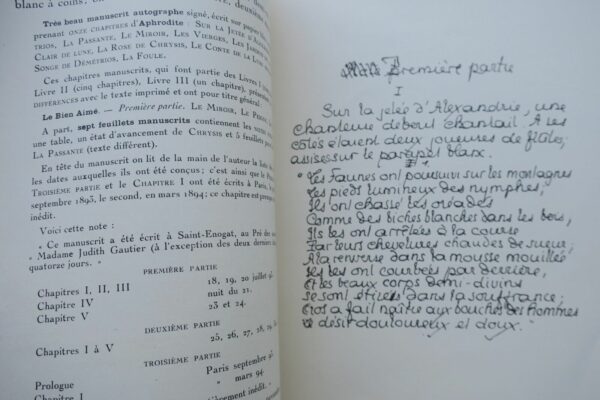 blanc à coins,
Très beau manuscrit autographe signé, écrit sur papier
prenant onze chapitres d'Aphrodite : Sur la Jetée d'A
trios, La Passante, Le Miroir, Les Vierges, Les
Clair de lune, La Rose de Chrysis, Le Conte de la
Songe de Démétrios, La Foule.
Ces chapitres manuscrits, qui font partie des Livres
Livre II (cinq chapitres), Livre III (un chapitre),
différences avec le texte imprimé et ont pour titre général :
Le Bien Aimé. — Première partie. Le Miroir, Le
A part, sept feuillets manuscrits contiennent les
une table, un état d'avancement de Chrysis et 5 feuillets
La Passante (texte différent).
En tête du manuscrit on lit de la main de l'auteur la
les dates auxquelles ils ont été conçus ; c'est ainsi que le
Troisième partie et le Chapitre I ont été écrits à Paris, le
septembre 1893, le second, en mars 1894; ce chapitre est presque
inédit.
Voici cette note :
« Ce manuscrit a été écrit à Saint-Enogat, au Pré des
Madame Judith Gautier (à l'exception des deux derniers
quatorze jours. »
PREMIÈRE PARTIE
Chapitres I, II, III 18, 19, 20 juillet 93.
Chapitre IV nuit du 21.
Chapitre V 23 et 24.
DEUXIÈME PARTIE
Chapitres I à V 25, 26, 27, 28,
TROISIÈME PARTIE
Prologue Paris septembre 93
Chapitre I " mars 94.
inédit. »
Première partie
I
Sur la jetée d'Alexandrie, une
chanteuse debout chantait. A ses
côtés étaient deux joueuses de flûte,
assises sur le parapet blanc.
I
"Les Faunes ont poursuivi sur les montagnes
Les pieds lumineux des nymphes;
Ils ont chassé les oréades
Comme des biches blanches dans les bois,
Ils les ont arrêtées à la course
Par leurs chevelures chaudes de sueur;
A la renverse dans la mousse mouillée
Ils les ont courbées par derrière,
Et les beaux corps demi-divins
Se sont étirés dans la souffrance;
Eros a fait naître aux bouches des Hommes
le désir douloureux et doux."